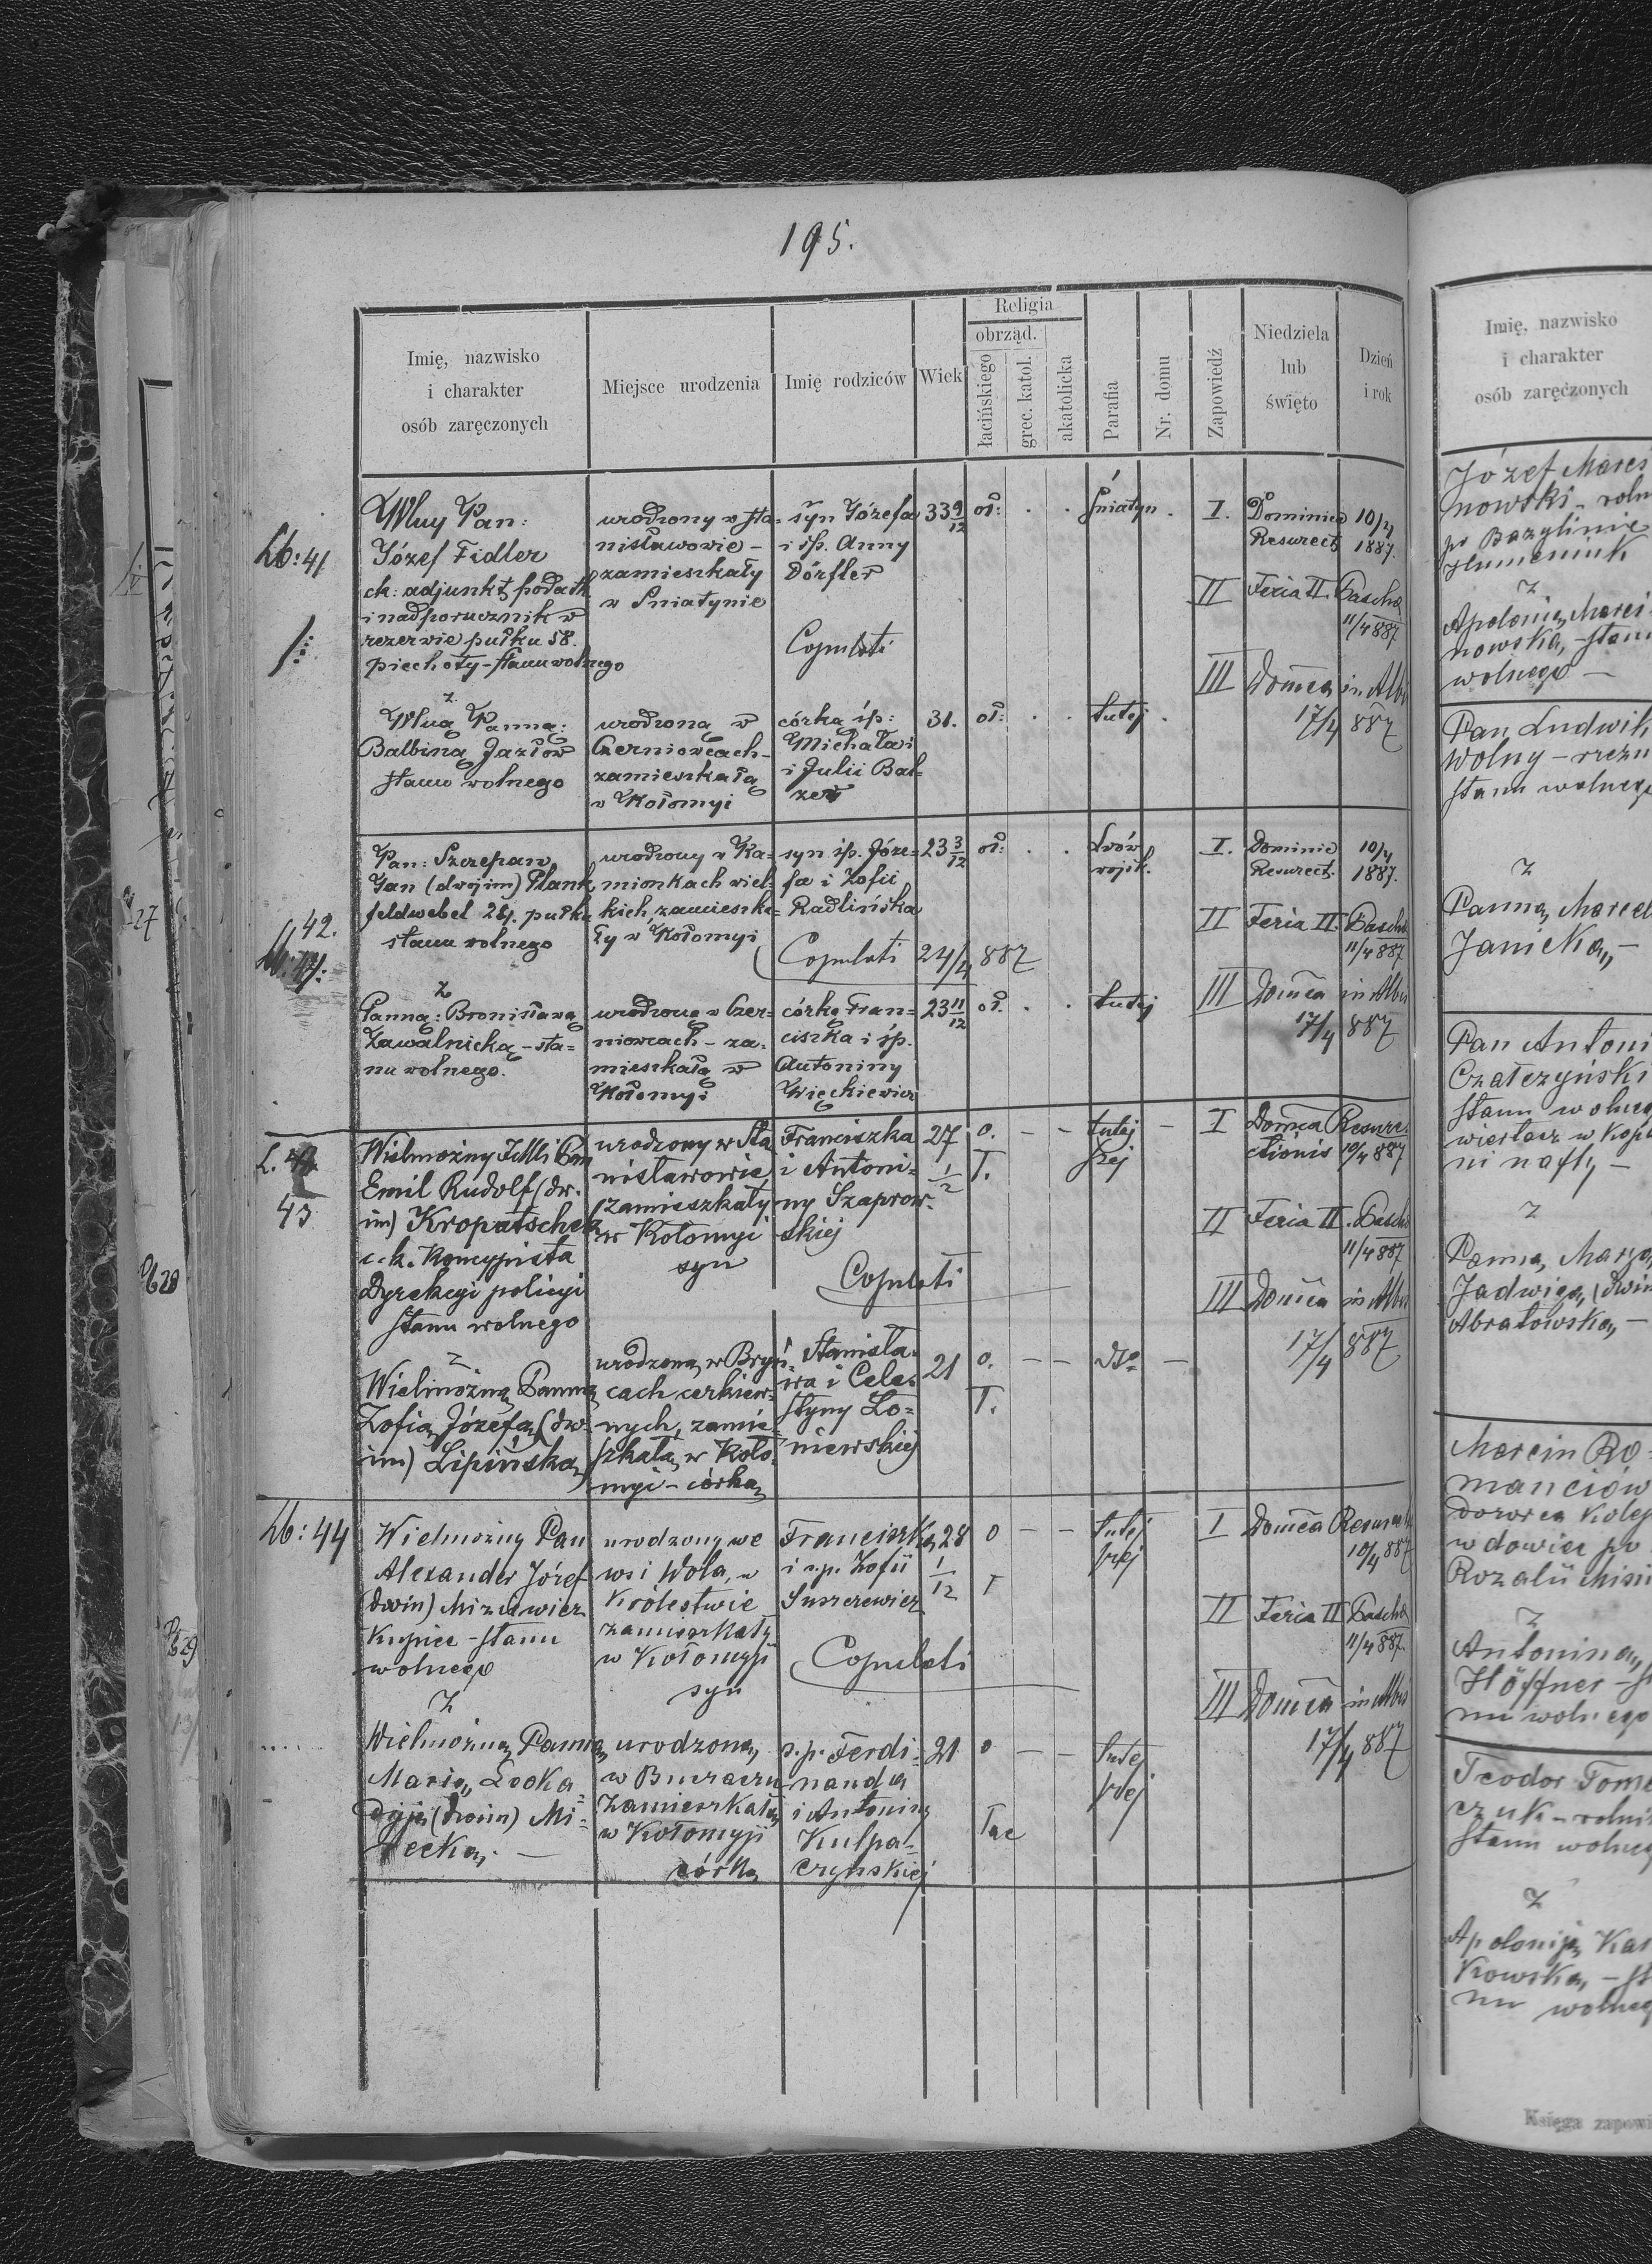 195.
Imię, nazwisko
i charakter
osób zaręczonych
Miejsce urodzenia
Imię rodziców
Wiek
Religia
obrząd.
łacińskiego
grec. katol.
akatolicka
Parafia
Nr. domu
Zapowiedź
Niedziela
lub
święto
Dzień
i rok
Lb: 41
Wluy Pan:
Józef Fidler
ck: adjunkt podatk
i nadporucznik w
rezerwie pułku 58.
piechoty - stanu wolnego
urodzony w Sta-
nisławowie -
zamieszkały
w Śniatynie
syn Józefa
i śp. Anny
Dörfler
Copulati
33 9/12
oł:
Śniatyn.
I. Dominica
Resurect.
10/4
1887.
II Feria II. Pascha
11/4 887
III Domca in Albis
17/4 887
z
Wluą Panną:
Balbiną Jazłow
stanu wolnego
urodzoną w
Czerniowcach -
zamieszkałą
w Kołomyi
córką śp:
Michała i
i Julii Bal-
zer
31.
oł:
tutej.
42.
Pan: Szczepan
Jan (dwojim) Plank
feldwebel 24. pułku
stanu wolnego
urodzony w Ka-
mionkach wiel-
kich, zamieszka-
ły w Kołomyi
syn śp. Józe-
fa i Zofii
Radlińska
Copulati 24/4 887
23 3/12
oł:
Lwów
wojsk.
I. Dominic
Resurect.
10/4
1887.
II Feria II. Pascha
11/4 887
III Domca in Albis
17/4 887
z
Panną: Bronisławą
Zawalnicką - sta-
nu wolnego.
urodzoną w Czer-
niowcach - za-
mieszkałą w
Kołomyi
córką Fran-
ciszka i śp.
Antoniny
Więckiewicz
23 11/12
oł.
tutej
L.
43
Wielmożny JMci Pan
Emil Rudolf (dw.
im) Kropatschek
c.k. Koncypista
Dyrekcyi policyi
stanu wolnego
urodzony w Sta
nisławowie,
zamieszkały
w Kołomyi
syn
Franciszka
i Antoni-
ny Szaprow-
skiej
Copulati
27 1/2
o.
T.
tutej
szej
I Domca Resurre-
ctionis 10/4 887
II Feria II. Pascha
11/4 887
III Domca in Albis
17/4 887
z
Wielmożną Panną
Zofią Józefą (dw-
im) Lipińską
urodzoną w Bryń-
cach cerkiew-
nych, zamie-
szkałą w Koło-
myi - córką
Stanisła-
wa i Cele-
styny Ło-
niewskiej
21
o.
T.
dto
Lb: 44
Wielmożny Pan
Alexander Józef
(dwim) Mizewicz
Kupiec - stanu
wolnego
urodzony we
wsi Wola, w
Królestwie
zamieszkały
w Kołomyji
syn
Franciszka
i ś.p. Zofii
Suszczewicz
Copulati
28 1/12
o
T
tutej
szej
I Domca Resurrect
10/4 887
II Feria II Pascha
11/4 887.
III Domca in Albis
17/4 887
z
Wielmożną Panną
Marią Leoka-
dyją (dwoim) Mi-
lecką. -
urodzoną
w Buczaczu
zamieszkałą
w Kołomyji
córką
ś.p. Ferdi-
nanda
i Antoniny
Kulpa-
czyńskiej
21
o
Tac
tutej
szej
27
28
29
Imię, nazwisko
i charakter
osób zaręczonych
Józef Marci
nowski - roln
po Bazylinie
Humeniuk
z
Apolonią Marci-
nowską, - stanu
wolnego -
Pan Ludwik
Wolny - rzeźn
stanu wolnego
z
Panną Marcel
Janicką, -
Pan Antoni
Czałczyński
stanu wolneg
wiertacz w Kopal
ni nafty -
z
Panną Maryą
Jadwigą (dwim
Abratowską, -
Marcin Ro-
manciów
Dozorca kolej
wdowiec po
Rozalii Misi
z
Antoniną
Höffner - st
nu wolnego
Teodor Tome
czuk - rolni
stanu wolneg
z
Apoloniją Kas
Kowską, - st
nu wolneg
Księga zapowi